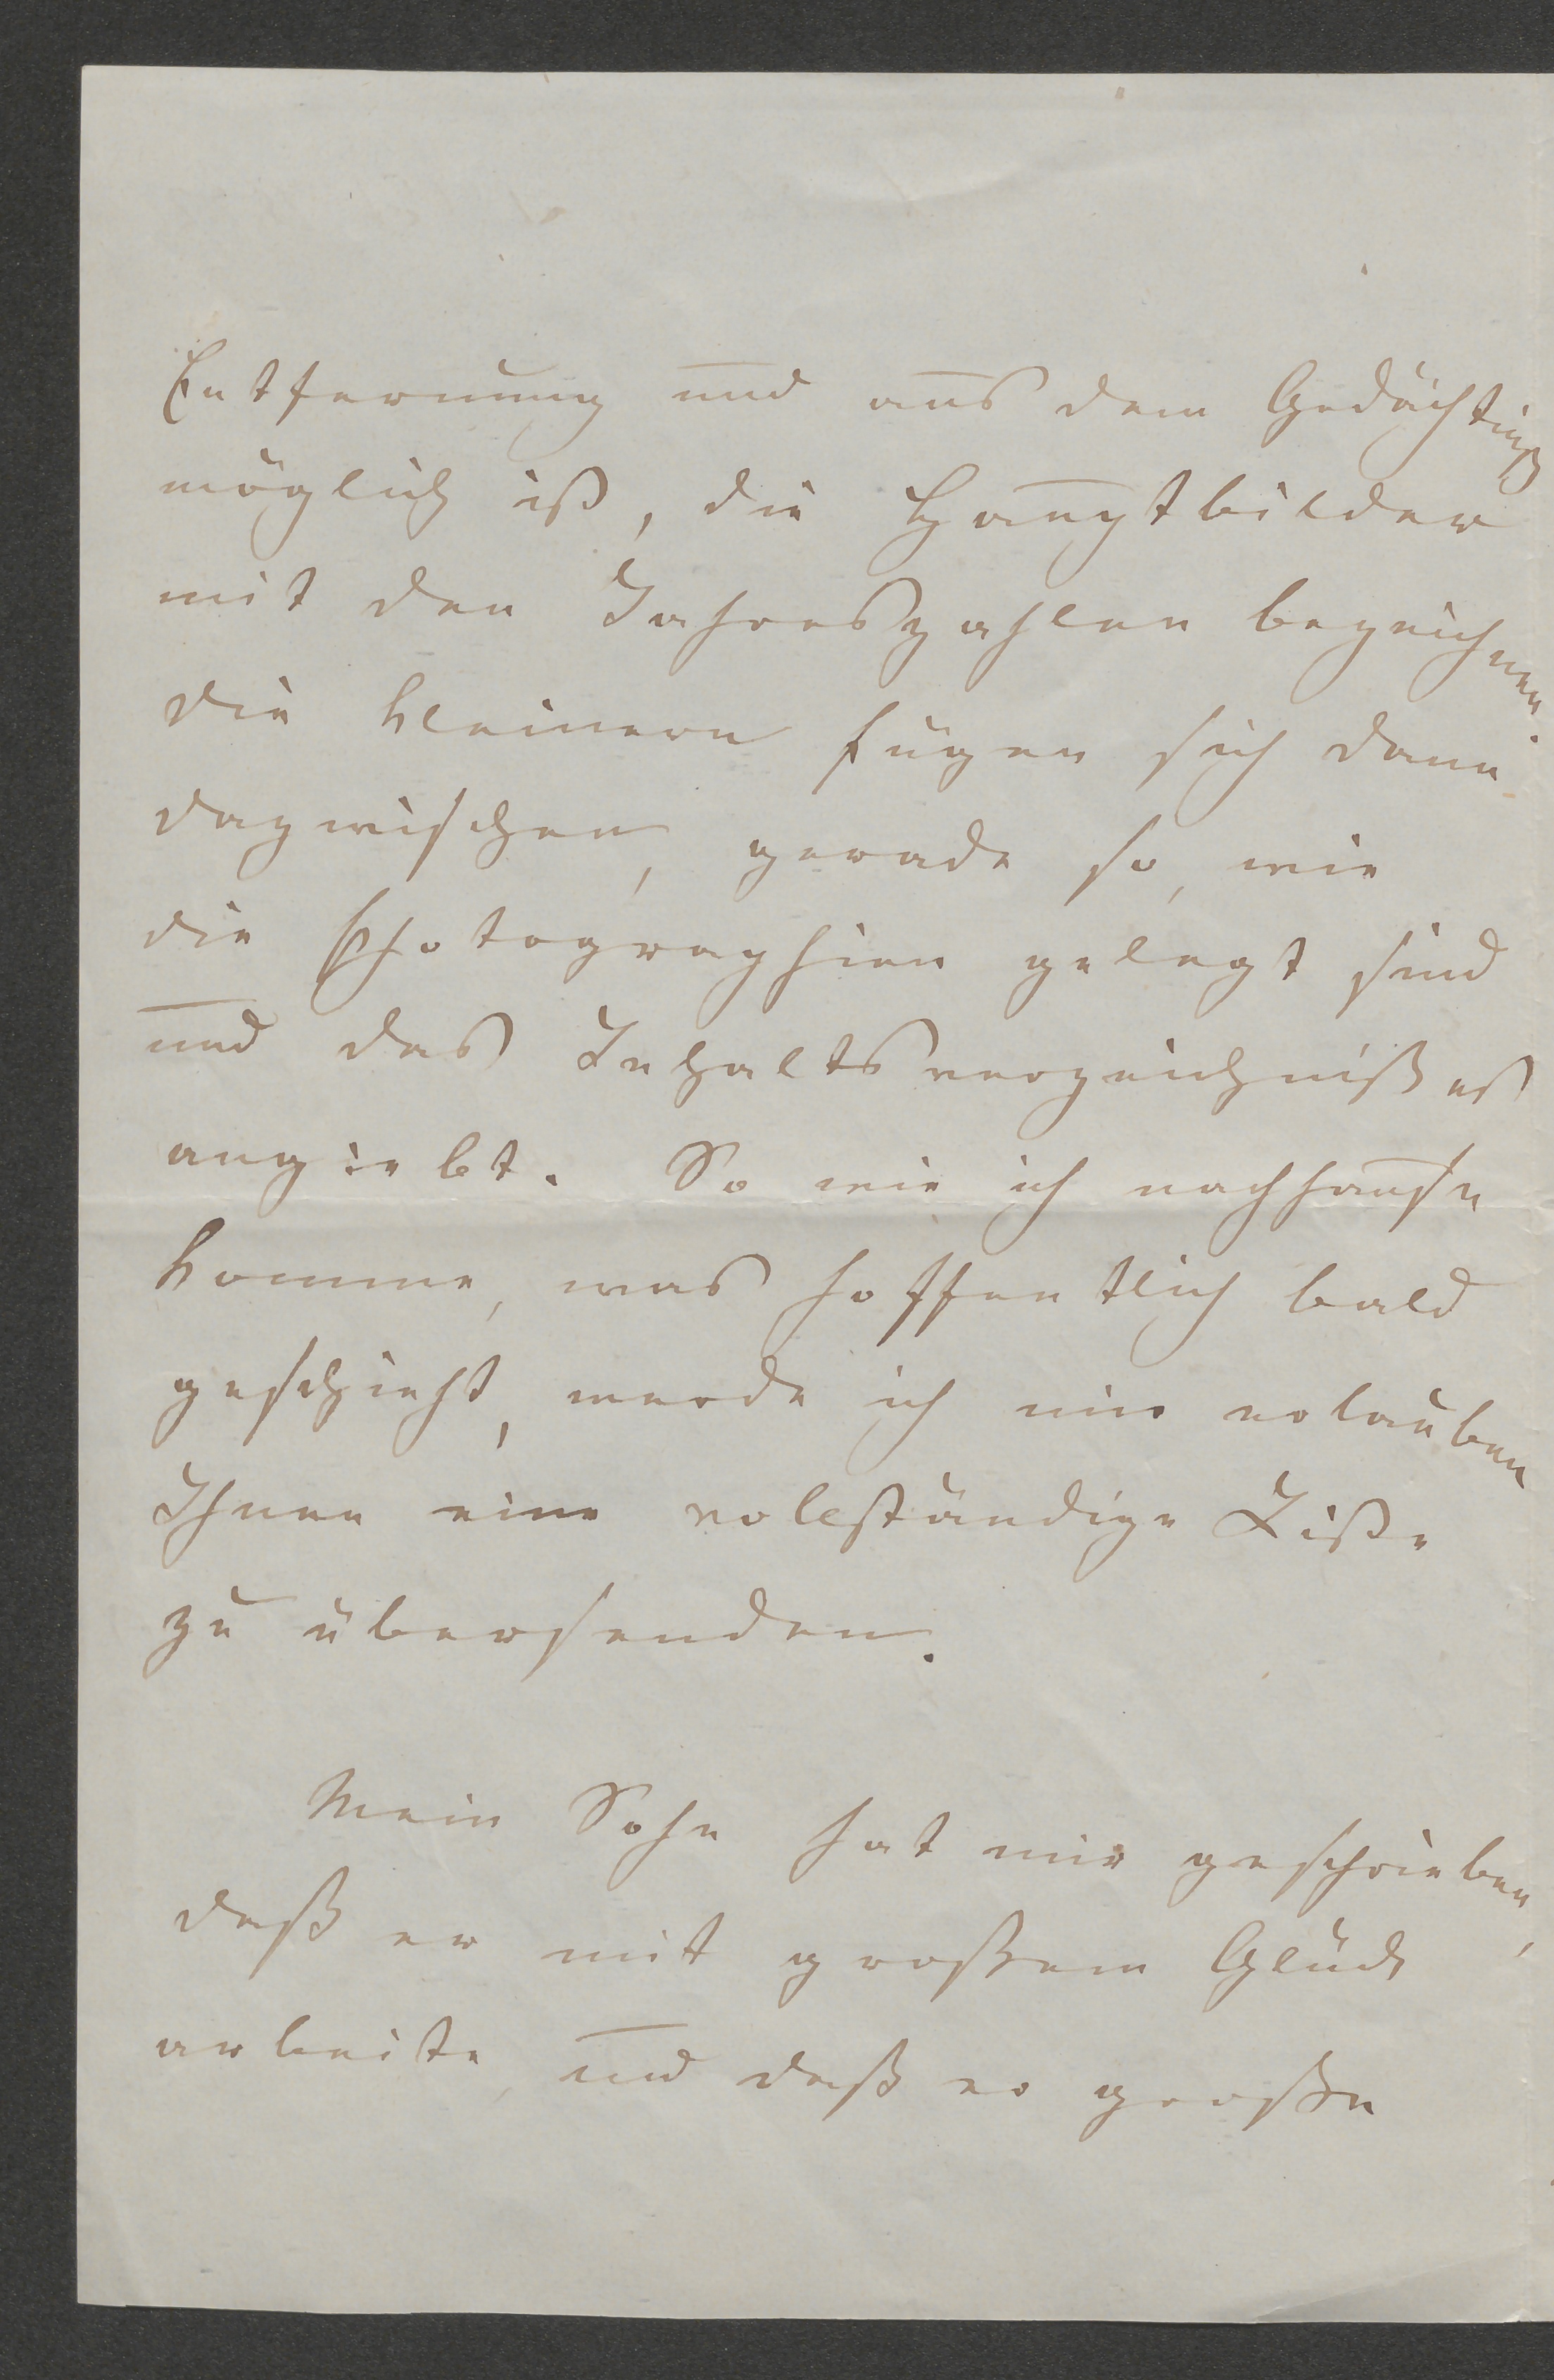 Entfernung und aus dem Gedächtniß
möglich ist, die Hauptbilder
mit den Jahreszahlen bezeichnen.
die kleinern fügen sich dann
dazwischen, gerade so, wie
die Photographien gelegt sind
und das Inhaltsverzeichniß es
angiebt. So wie ich nachhause
komme, was hoffentlich bald
geschieht, werde ich mir erlauben
Ihnen eine vollständige Liste
zu übersenden.
Mein Sohn hat mir geschrieben,
daß er mit großem Glück
arbeite, und daß er große